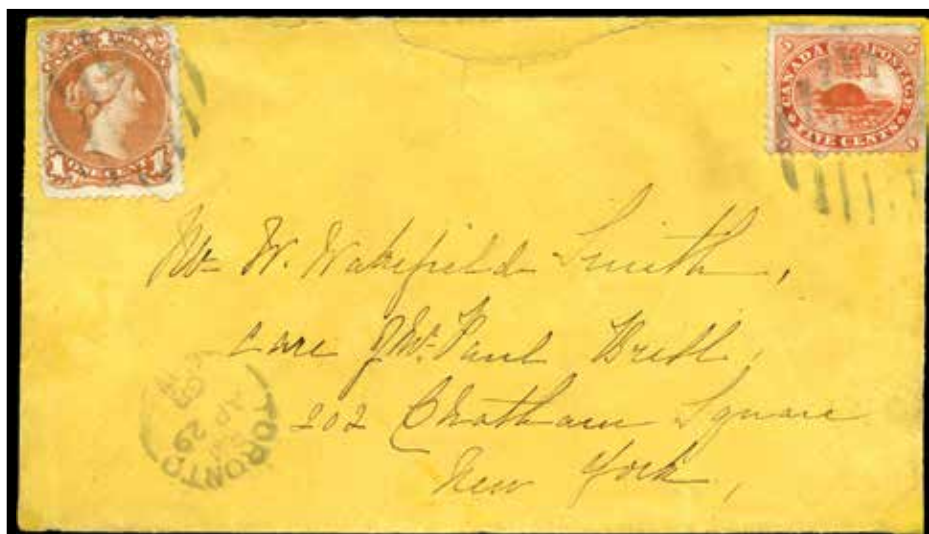 CANADA POSTAGE
1 ONE CENT 1
5 CANADA POSTAGE 5
FIVE CENTS
Mr W. Wakefield Smith,
care of Mr. Paul
202 Chatham Square
New York,
TORONTO
AP 29